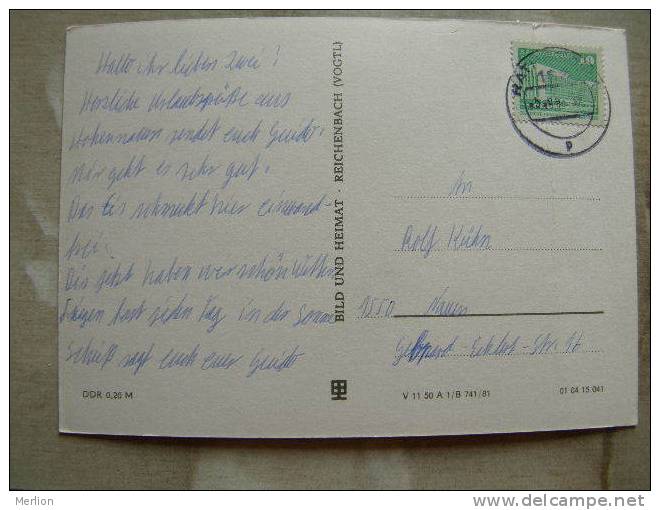 Hallo ihr lieben Zwei!
Herzliche Urlaubsgrüße aus
Hohennauen sendet euch Guido.
Mir geht es sehr gut.
Das Eis schmeckt hier einwand-
frei.
Bis jetzt haben wir schön Wetter
liegen fast jeden Tag in der Sonne
sagt euch euer Guido
BILD UND HEIMAT · REICHENBACH (VOGTL)
10
An
Rolf Kühn
1550 Nauen
Str. 17
DDR 0,20 M
V 11 50 A 1/B 741/81
01 04 15 041
Merlion
www.delcampe.net